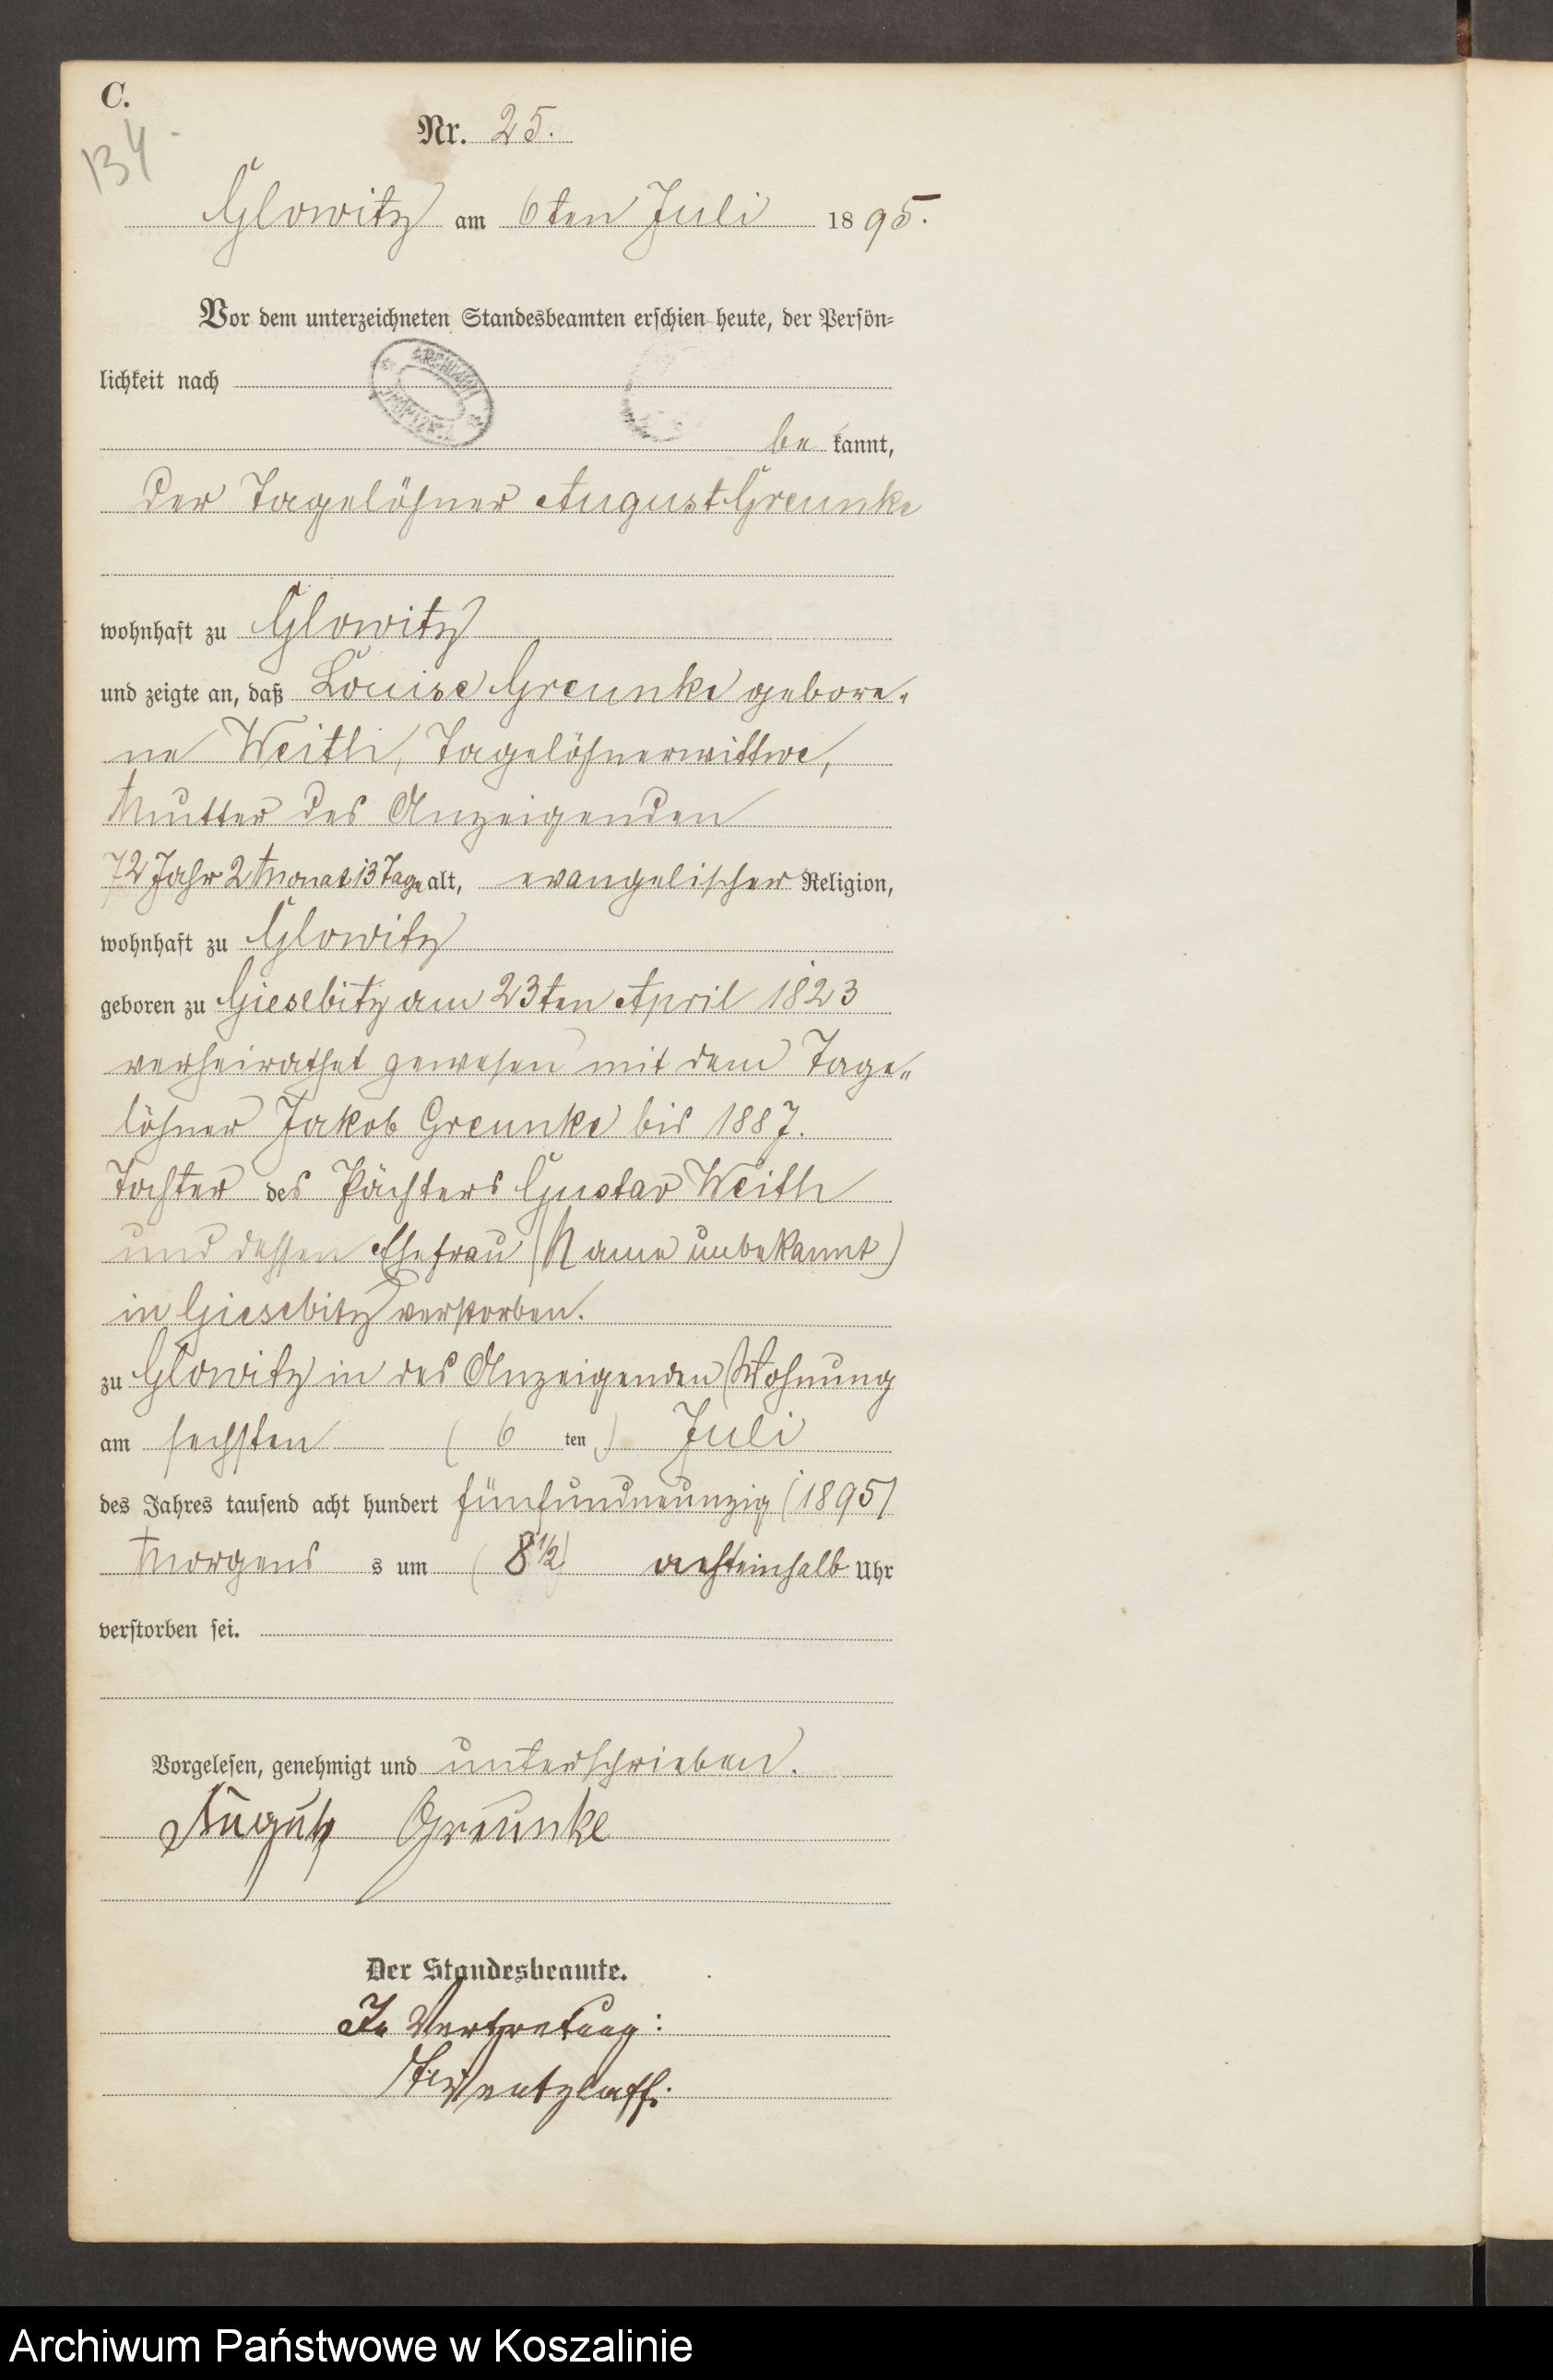 C.
134
Nr. 25.
Glowitz am 6ten Juli 1895.
Vor dem unterzeichneten Standesbeamten erschien heute, der Persön=
lichkeit nach
ARCHIWUM
be kannt,
der Tagelöhner August Greunke
wohnhaft zu Glowitz
und zeigte an, daß Louise Greunke gebore„
ne Weith, Tagelöhnerwittwe,
Mutter des Anzeigenden
72 Jahr 2 Monat 13 Tage alt, evangelischer Religion,
wohnhaft zu Glowitz
geboren zu Giesebitz am 23ten April 1823
verheirathet gewesen mit dem Tage„
löhner Jakob Greunke bis 1887.
Tochter des Pächters Gustav Weith
und dessen Ehefrau (Name unbekannt)
in Giesebitz verstorben.
zu Glowitz in des Anzeigenden Wohnung
am sechsten (6 ten) Juli
des Jahres tausend acht hundert fünfundneunzig (1895)
Morgens s um (8½) achteinhalb Uhr
verstorben sei.
Vorgelesen, genehmigt und unterschrieben.
August Greunke
Der Standesbeamte.
In Vertretung:
Wentzlaff.
Archiwum Państwowe w Koszalinie